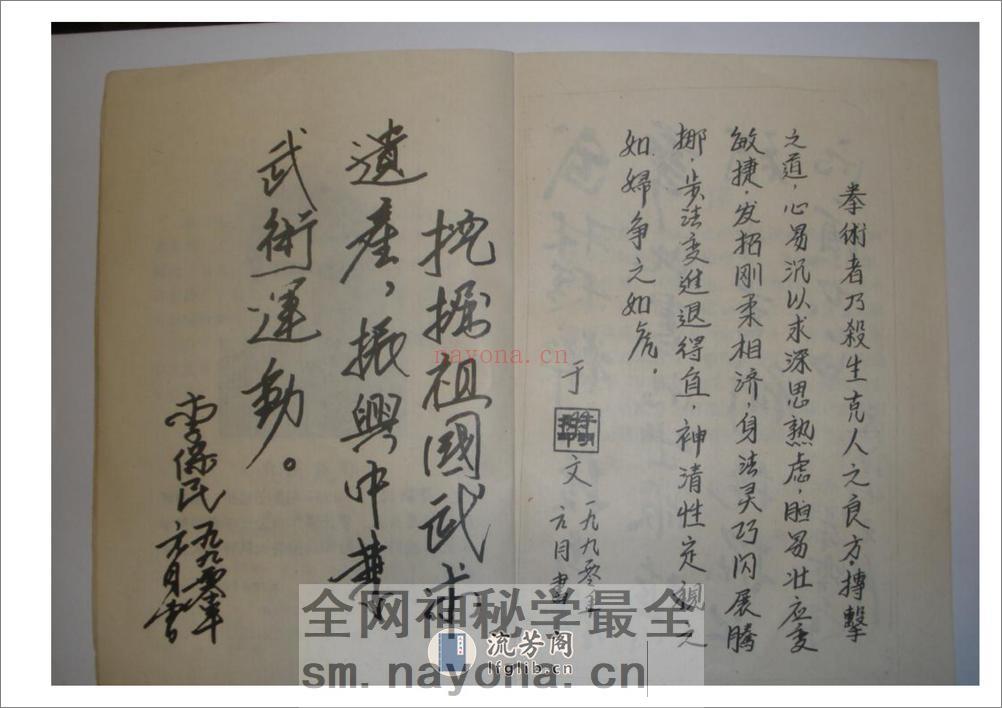 拳術者乃殺生克人之良方.搏擊
之道,心易沉以求深思熟虑,胆易壮应变
敏捷.发招刚柔相济,身法灵巧闪展腾
挪.步法变進退得宜,神清性定視之
如婦争之如虎。
于文
一九九零年
六月書
挖掘祖國武术
遺產,振興中華
武術運動。
保民
一九九零年
六月書
nayona.cn
全网神秘学最全
流芳阁
lfglib.cn
sm.nayona.cn